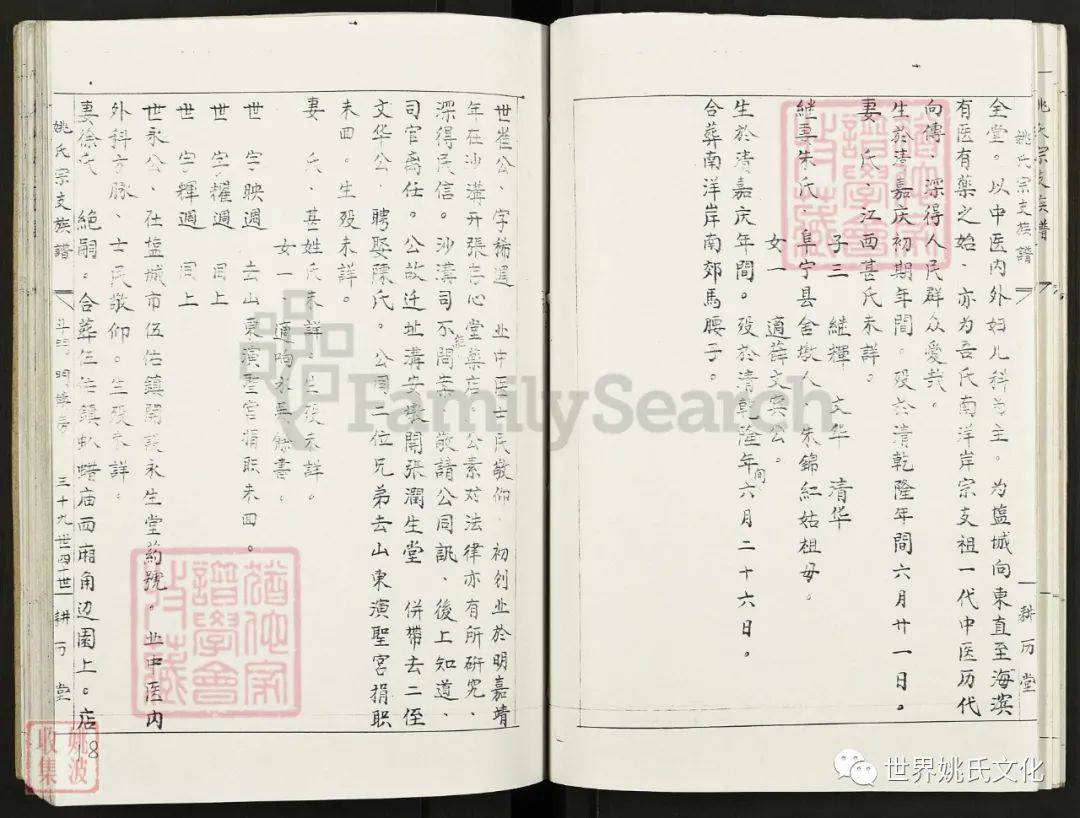 姚氏宗支族譜
耕历堂
全堂。以中医内外妇儿科为主。为塩城向東直至海濱
有医有藥之始、亦为吾氏南洋岸宗支祖一代中医历代
向傳、深得人民群众愛哉。
生於清嘉庆初期年間。殁於清乾隆年間六月廿一日。
妻 氏、江西甚氏未詳。
子三 继輝 文华 清华
継妻朱氏、阜宁县舍墩人 朱錦紅姑祖母。
女一 適薛文寀公。
生於清嘉庆年間。殁於清乾隆年間六月二十六日。
合葬南洋岸南郊馬腰子。
世崔公、字稀遲 业中医士民敬仰、初创业於明嘉靖
年在沙溝开張存心堂藥店、公素对法律亦有所研究、
深得民信。沙溝司不問案、敬請公同訊、後上知道、
司官离任。公故迁址溝安墩開張潤生堂 併帶去二侄
文华公、聘娶陳氏。公同二位兄弟去山東演聖宮捐职
未回。生殁未詳。
妻 氏、甚姓氏未詳、生殁未詳。
女一、適
世 字映週 去山東演聖宫捐职未回。
世 字耀週 同上
世 字輝週 同上
世永公、在塩城市伍佑鎮開設永生堂药號。业中医内
外科方脉、士民敬仰。生殁未詳。
妻徐氏 絶嗣。合葬伍佑鎮虬蜡庙西廂角辺園上。店
姚氏宗支族譜
三十九世四十世
耕历堂
8
姚波
收集
FamilySearch
世界姚氏文化